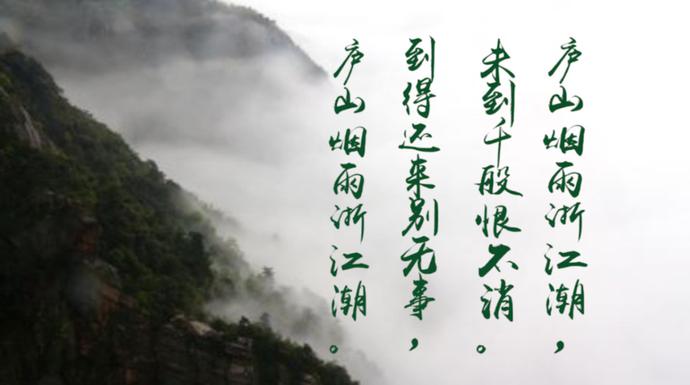 庐山烟雨浙江潮，
未到千般恨不消。
到得还来别无事，
庐山烟雨浙江潮。